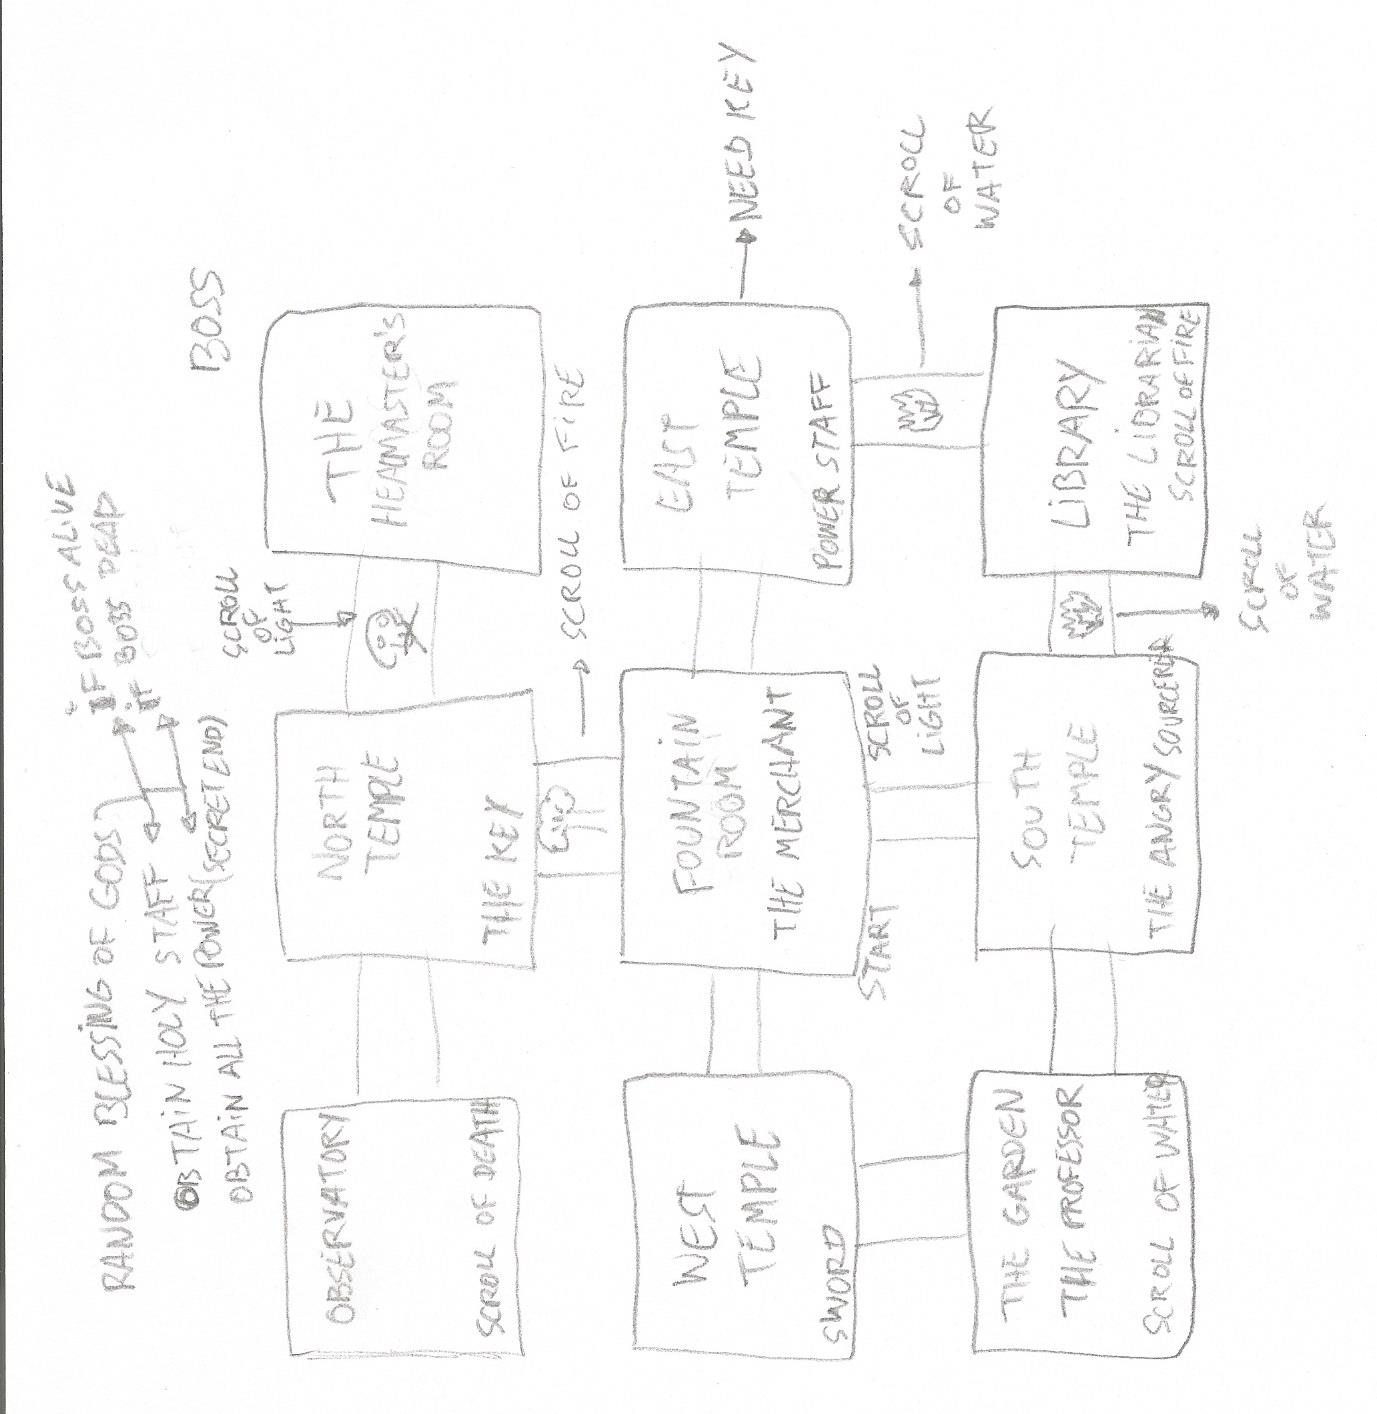 RANDOM BLESSING OF GODS
iF BOSS ALiVE
iF BOSS DEAD
OBTAiN HOLY STAFF
OBTAiN ALL THE POWER (SECRET END)
BOSS
SCROLL
OF
LiGHT
OBSERVATORY
SCROLL OF DEATH
NORTH
TEMPLE
THE KEY
THE
HEADMASTER'S
ROOM
SCROLL OF FiRE
WEST
TEMPLE
SWORD
FOUNTAiN
ROOM
THE MERCHANT
START
EAST
TEMPLE
POWER STAFF
NEED KEY
SCROLL
OF
LiGHT
SCROLL
OF
WATER
THE GARDEN
THE PROFESSOR
SCROLL OF WATER
SOUTH
TEMPLE
THE ANGRY SOURCERER
LiBRARY
THE LiBRARiAN
SCROLL OF FiRE
SCROLL
OF
WATER